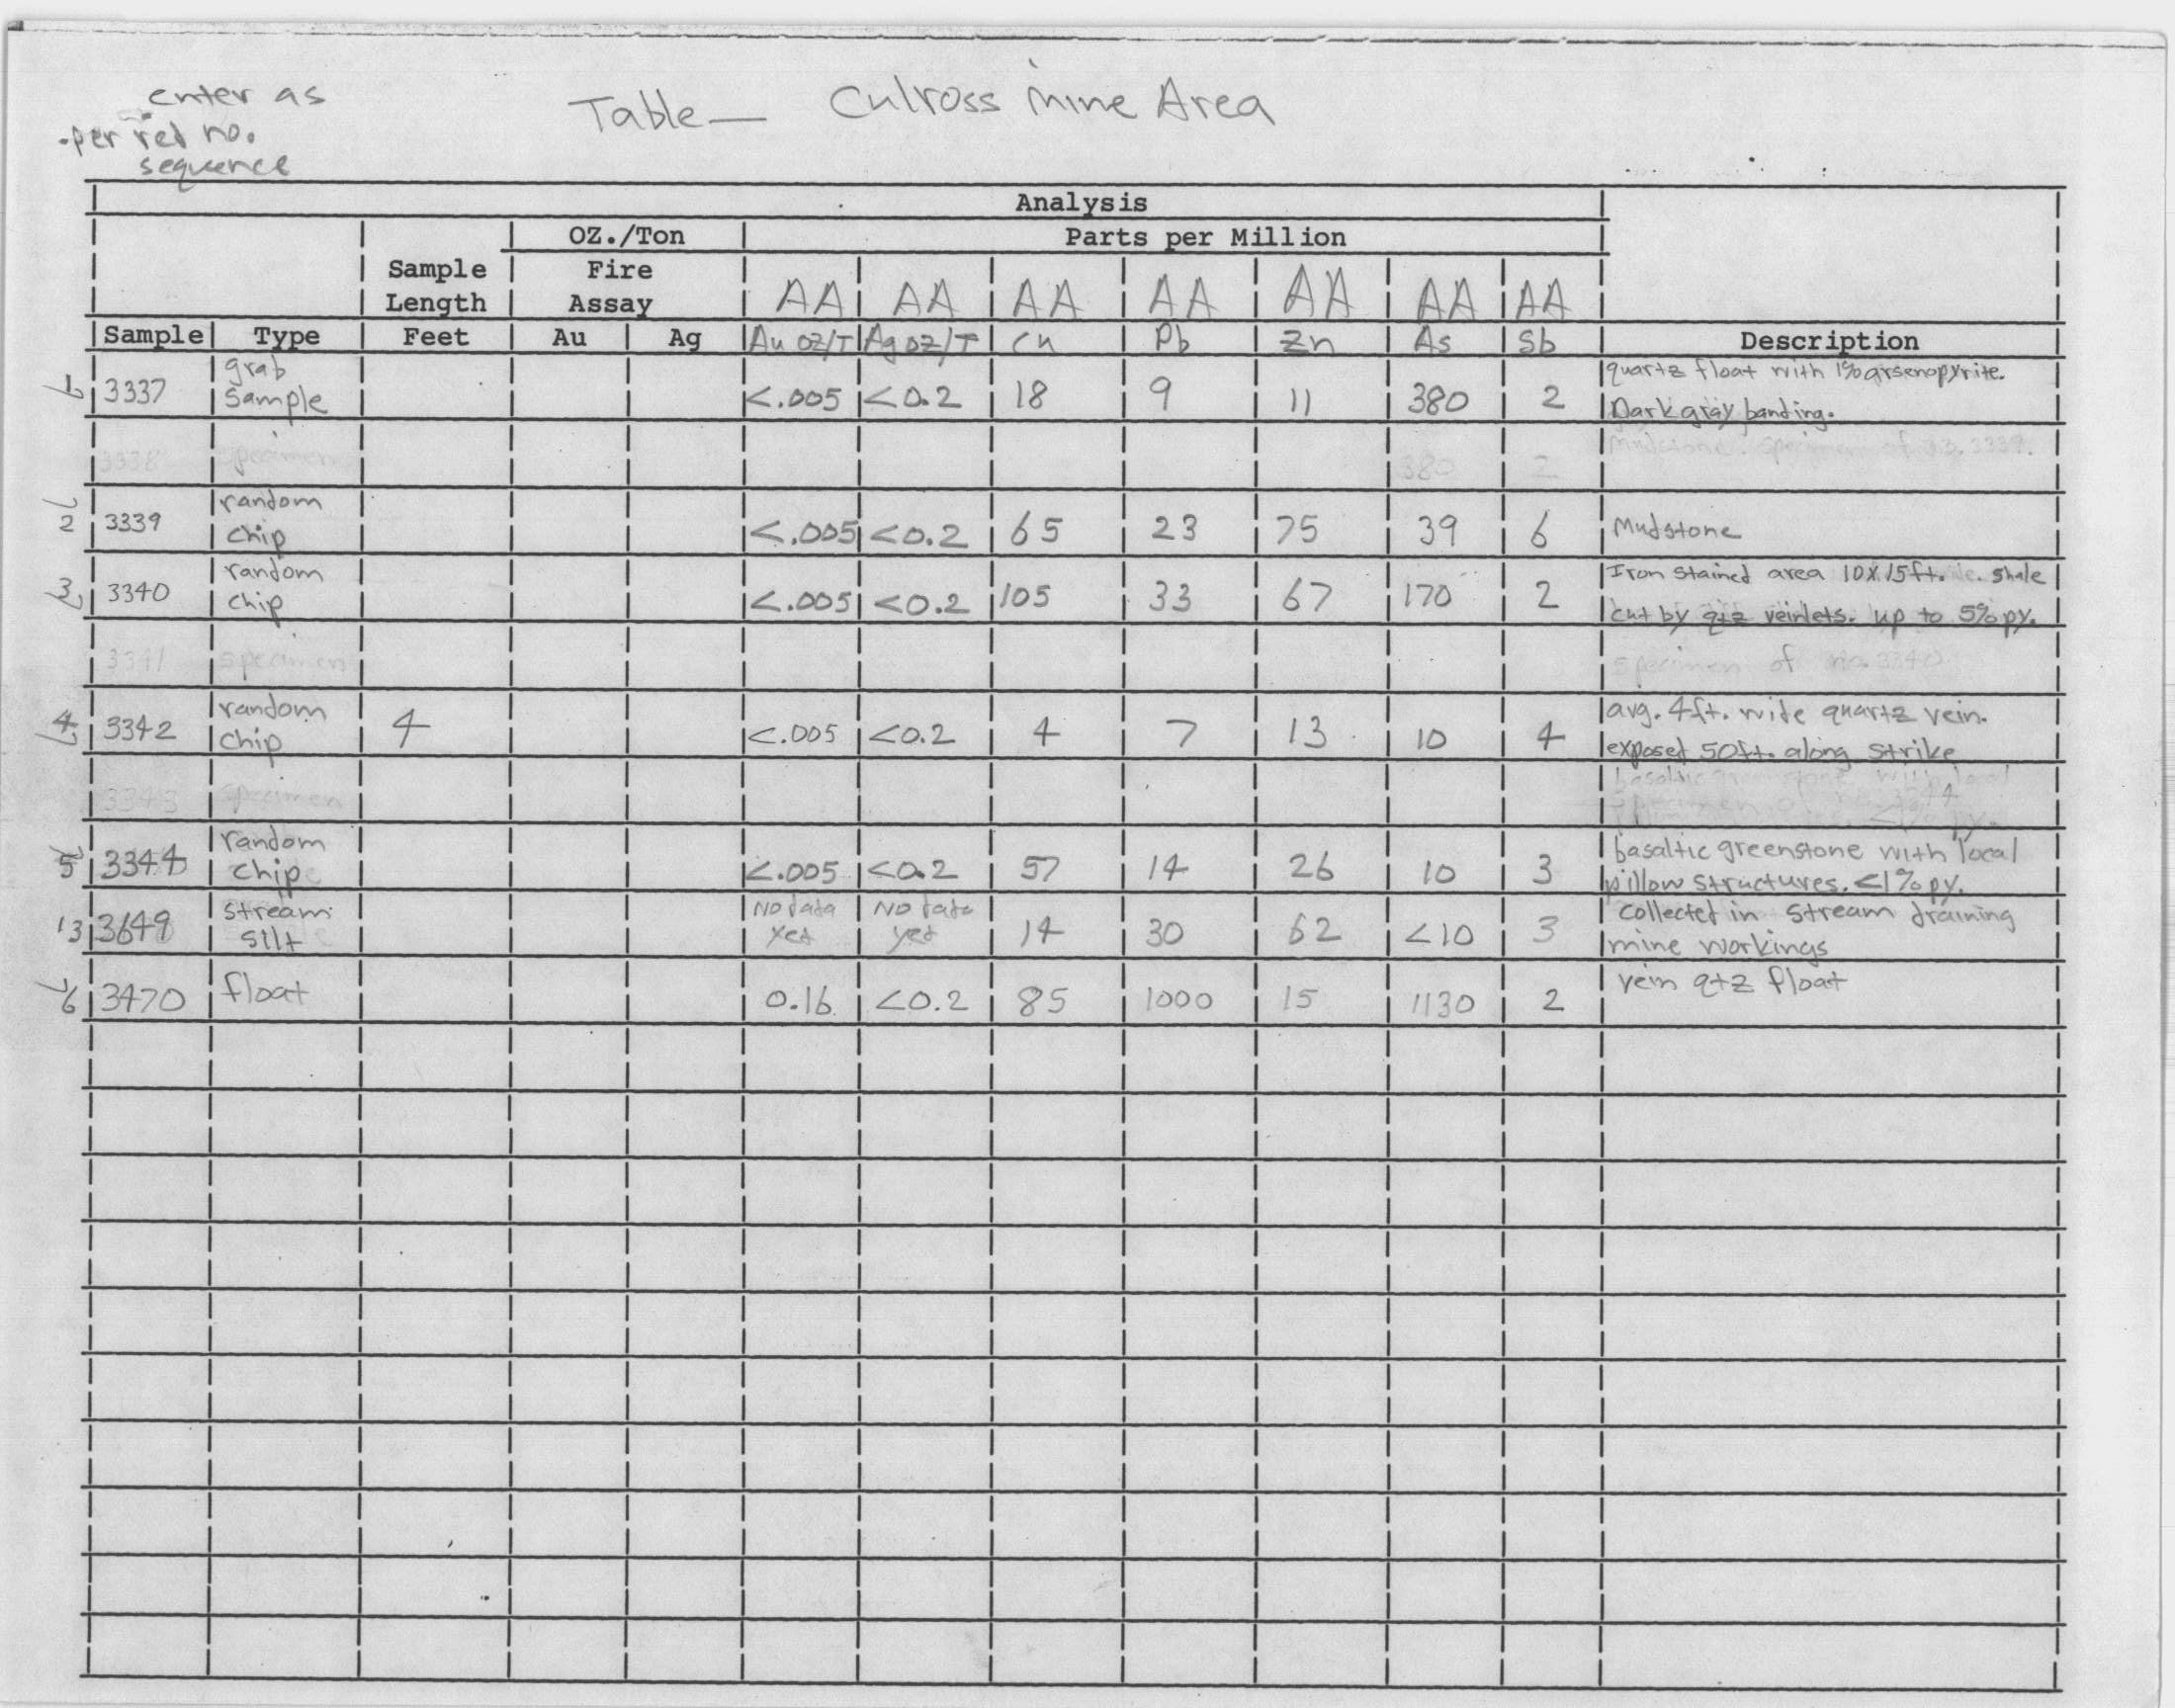 enter as
per red no.
sequence
Table — Culross Mine Area
Analysis
OZ./Ton Parts per Million
Sample Fire
Length Assay AA AA AA AA AA AA AA
Sample Type Feet Au Ag Au OZ/T Ag OZ/T Cu Pb Zn As Sb Description
grab quartz float with 1% arsenopyrite.
1 3337 sample <.005 <0.2 18 9 11 380 2 Dark gray banding.
Mudstone. specimen of no. 3339.
3338 specimen 380 2
random
2 3339 chip <.005 <0.2 65 23 75 39 6 Mudstone
random Iron stained area 10X15ft. shale
3 3340 chip <.005 <0.2 105 33 67 170 2 cut by qtz veinlets. up to 5% py.
3341 specimen specimen of no. 3340
random avg. 4ft. wide quartz vein.
4 3342 chip 4 <.005 <0.2 4 7 13 10 4 exposed 50ft. along strike
basaltic greenstone with local
3343 specimen specimen of no. 3344
<1% py.
random basaltic greenstone with local
5 3344 chip <.005 <0.2 57 14 26 10 3 pillow structures. <1% py.
stream No data No data collected in stream draining
13 3649 silt yet yet 14 30 62 <10 3 mine workings
6 3470 float 0.16 <0.2 85 1000 15 1130 2 vein qtz float